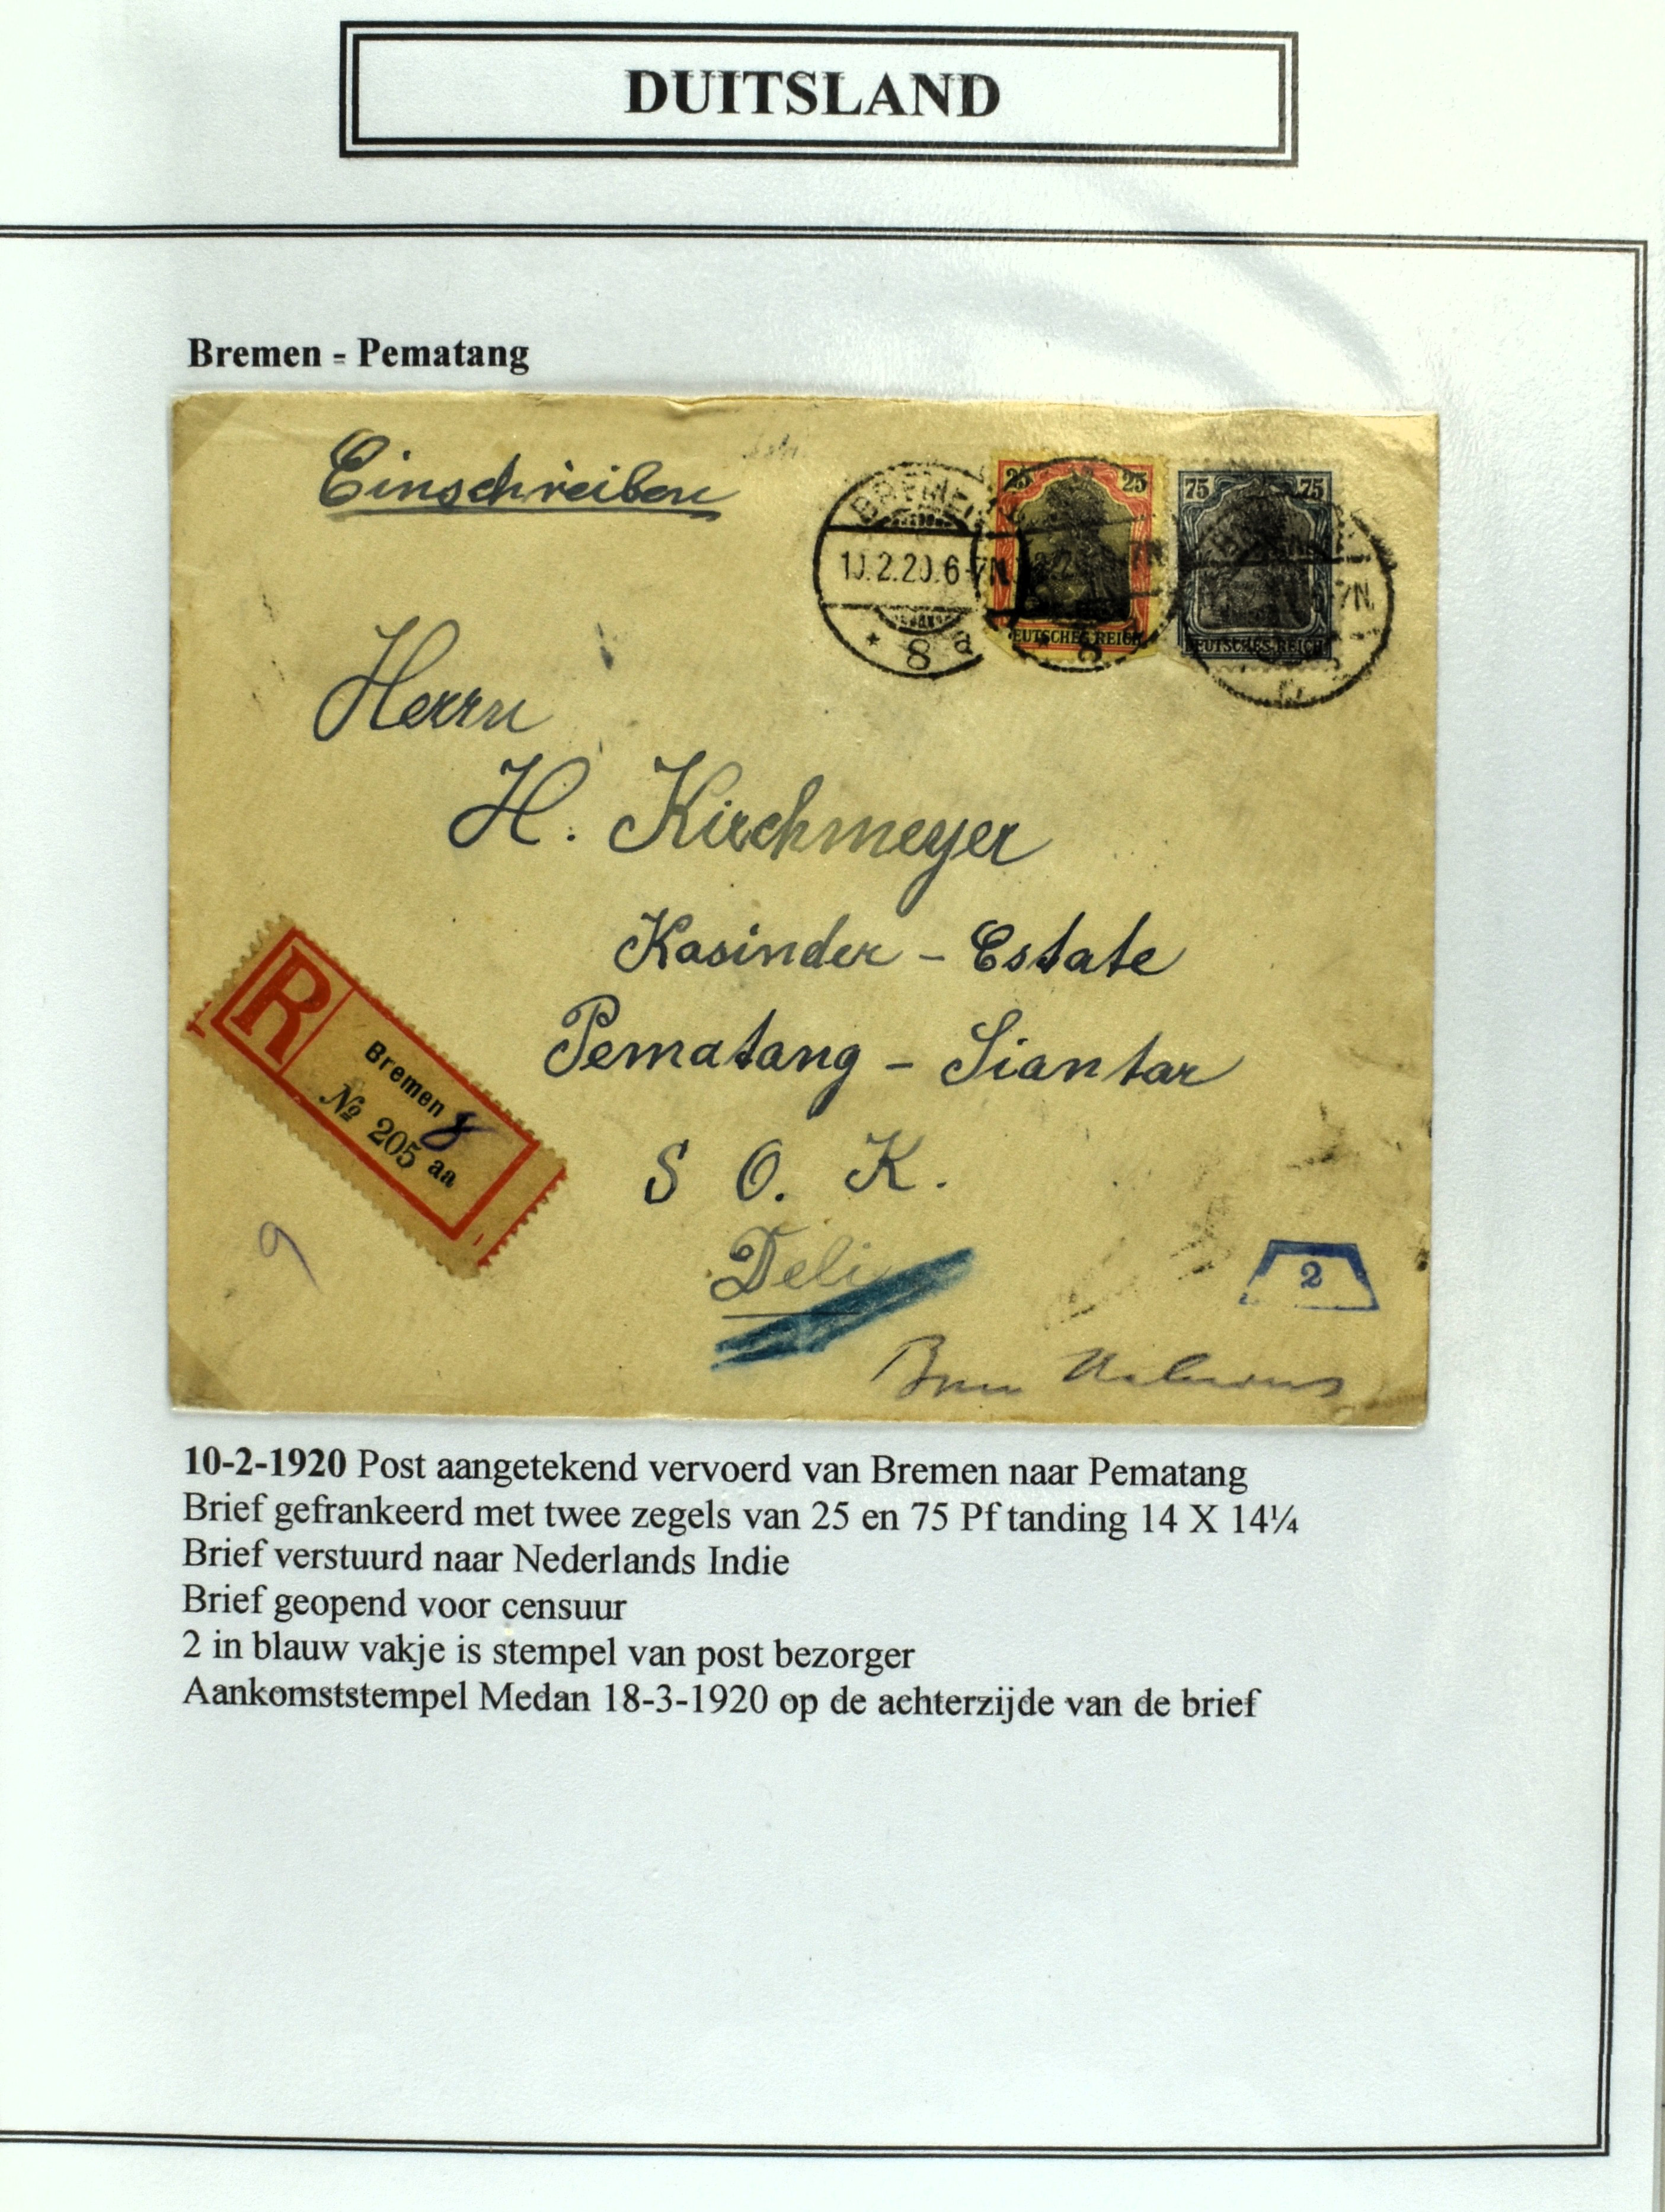 DUITSLAND
Bremen - Pematang
Einschreiben
BREMEN
10.2.20.6-7N
* 8 a
25 25
DEUTSCHES REICH
75 75
DEUTSCHES REICH
Herrn
H. Kirchmeyer
Kasinder - Estate
Pematang - Siantar
S O. K.
Deli
R
Bremen 8
№ 205 aa
9
2
10-2-1920 Post aangetekend vervoerd van Bremen naar Pematang
Brief gefrankeerd met twee zegels van 25 en 75 Pf tanding 14 X 14¼
Brief verstuurd naar Nederlands Indie
Brief geopend voor censuur
2 in blauw vakje is stempel van post bezorger
Aankomststempel Medan 18-3-1920 op de achterzijde van de brief